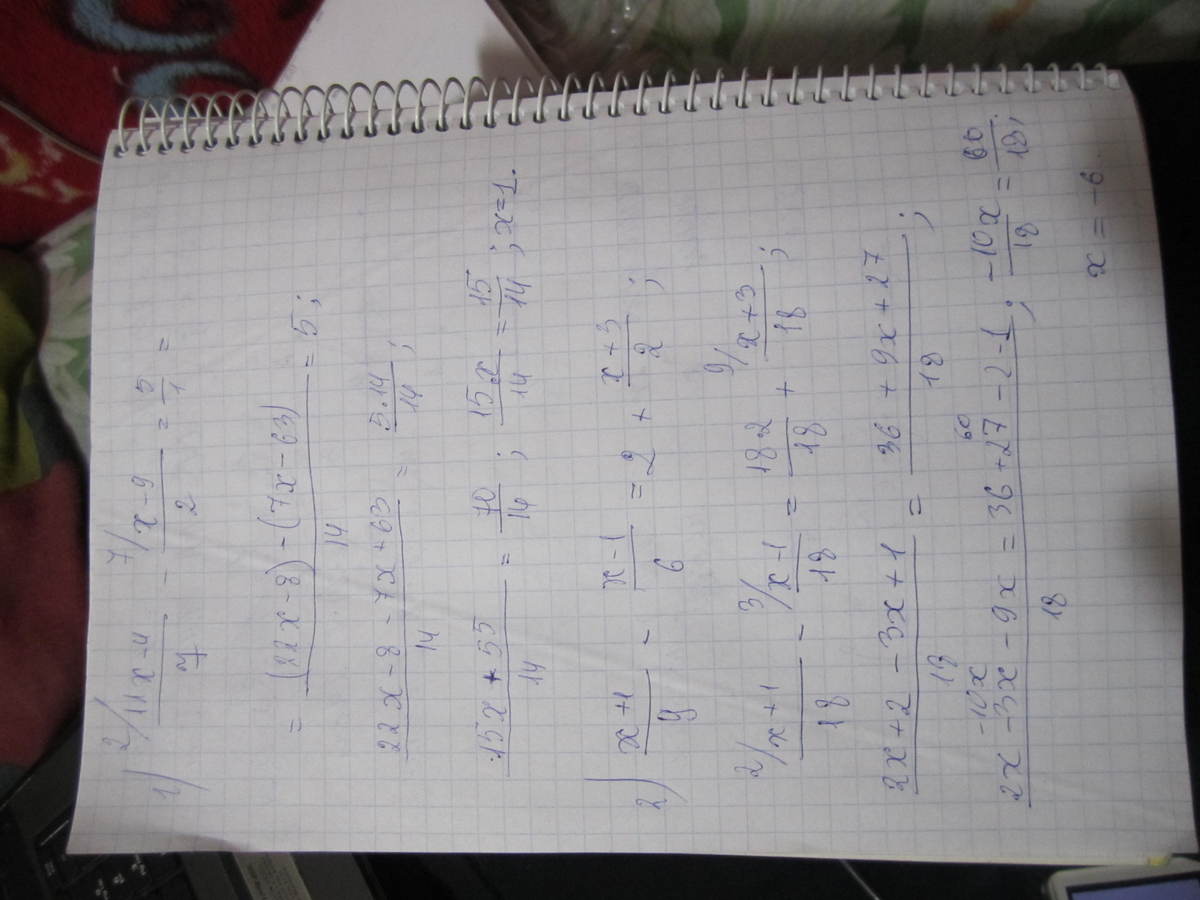 1) 2/ 11x-4 / 7 - 7/ x-9 / 2 = 5/1 =
= (22x-8)-(7x-63) / 14 = 5;
22x-8-7x+63 / 14 = 5·14 / 14;
15x+55 / 14 = 70 / 14; 15x / 14 = 15 / 14; x=1.
2) x+1 / 9 - x-1 / 6 = 2 + x+3 / 2;
2/ x+1 / 18 - 3/ x-1 / 18 = 18·2 / 18 + 9/ x+3 / 18;
2x+2-3x+1 / 18 = 36+9x+27 / 18;
-10x 60
2x-3x-9x = 36+27-2-1 / 18; -10x / 18 = 60 / 18;
x=-6.